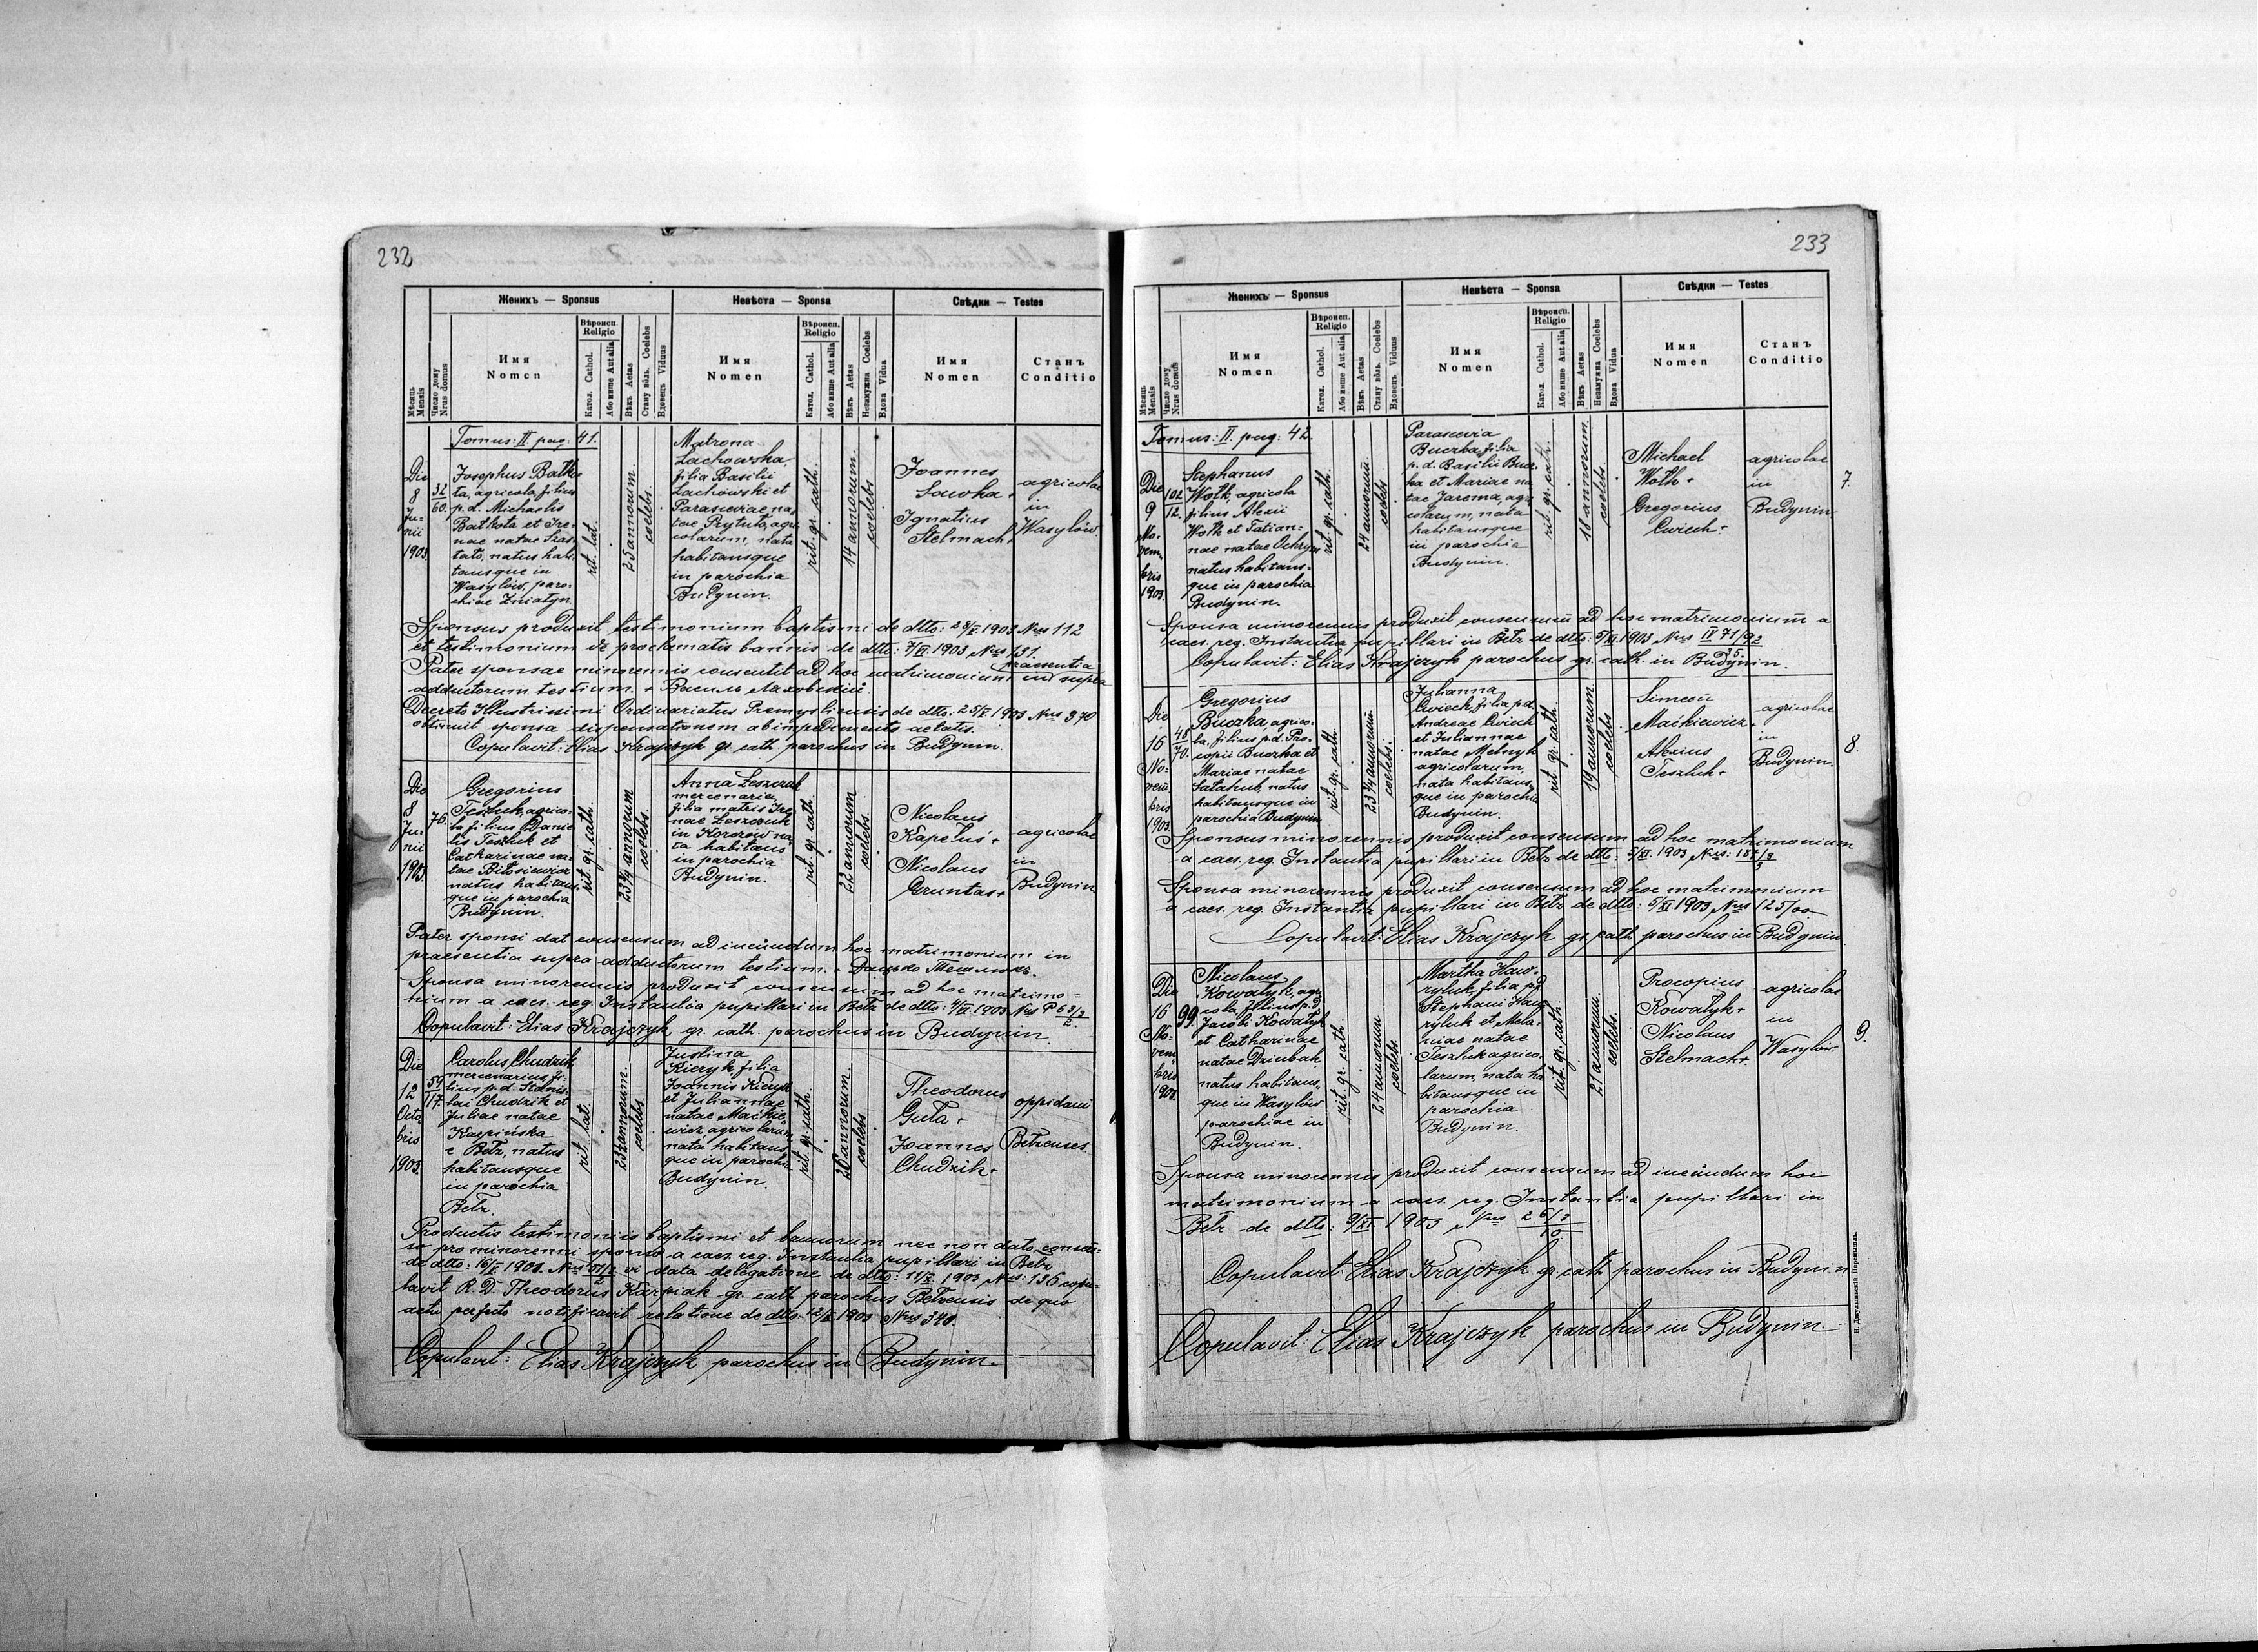 232
Женихъ — Sponsus
Невѣста — Sponsa
Свѣдки — Testes
Мѣсяць Mensis
Число дому Nrus domus
Имя
Nomen
Вѣроисп.
Religio
Катол. Cathol.
Або инше Aut alia
Вѣкъ Aetas
Стану вѣль. Coelebs
Вдовець Viduus
Имя
Nomen
Вѣроисп.
Religio
Катол. Cathol.
Або инше Aut alia
Вѣкъ Aetas
Незамужна Coelebs
Вдова Vidua
Имя
Nomen
Станъ
Conditio
Tomus: II pag: 41.
Die
8
Ju-
nii
1903
32
60.
Josephus Batko-
ta, agricola, filius
p. d. Michaelis
Batkota et Ire-
nae natae
natus habi-
tansque in
Wasylów, paro-
chiae Zniatyn
rit. lat.
25 annorum
coelebs
Matrona
Lachowska,
filia Basilii
Lachowski et
Parasceviae na-
tae Prytuta, agri-
colarum, nata
habitansque
in parochia
Budynin.
rit. gr. cath.
14 annorum.
coelebs
Joannes
Sawka +
Ignatius
Stelmach +
agricolae
in
Wasylów.
Sponsus produxit testimonium baptismi de dtto: 28/V 1903 Nrus 112
et testimonium de proclamatis bannis de dtto: 7/VI 1903 Nrus 131.
Pater sponsae minorennis consentit ad hoc matrimonium in praesentia supra
adductorum testium. + Василь Лаховскій.
Decreto Illustrissimi Ordinariatus Premysliensis de dtto: 25/V 1903 Nrus 370
obtinuit sponsa dispensationem ab impedimento aetatis.
Copulavit: Elias Krajczyk gr. cath. parochus in Budynin.
Die
8
Ju-
nii
1903.
76.
Gregorius
Teszluk, agrico-
la, filius Danie-
lis Teszluk et
Catharinae na-
tae Bitosiewicz
natus habitans-
que in parochia
Budynin.
rit. gr. cath.
23 3/4 annorum
coelebs.
Anna Leszczuk
mercenaria,
filia matris Ire-
nae Leszczuk
in Korczów na-
ta habitans
in parochia
Budynin.
rit. gr. cath.
22 annorum
coelebs.
Nicolaus
Kapetuś +
Nicolaus
Gruntas +
agricolae
in
Budynin
Pater sponsi dat consensum ad ineundum hoc matrimonium in
praesentia supra adductorum testium. + Данько Тешлюкъ.
Sponsa minorennis produxit consensum ad hoc matrimo-
nium a caes. reg. Instantia pupillari in Betz de dtto: 4/VI 1903 Nrus P 63/3
2.
Copulavit: Elias Krajczyk gr. cath. parochus in Budynin.
Die
12
Octo
bris
1903.
59
117.
Carolus Chudzik
mercenarius, fi-
lius p. d. Stanis-
lai Chudzik et
Juliae natae
Karpińska
e Betz, natus
habitansque
in parochia
Betz.
rit. lat.
annorum.
coelebs.
Justina
Kiczyk, filia
Joannis Kiczyk
et Juliannae
natae Maćkie-
wicz, agricolarum
nata habitans-
que in parochia
Budynin.
rit. gr. cath.
annorum.
coelebs
Theodorus
Guta +
Joannes
Chudzik +
oppidani
Betzenses.
Productis testimoniis baptismi et bannorum nec non dato consen-
su pro minorenni sponso a caes. reg. Instantia pupillari in Betz
de dtto: 16/V 1903. Nrus vi data delegatione de dtto: 11/X 1903 Nrus: 136 copu-
lavit R. D. Theodorus Karpiak gr. cath. parochus Betzensis de quo
actu perfecto notificavit relatione de dtto: 12/X 1903 Nrus 340.
Copulavit: Elias Krajczyk parochus in Budynin.
233
Женихъ — Sponsus
Невѣста — Sponsa
Свѣдки — Testes
Мѣсяць Mensis
Число дому Nrus domus
Имя
Nomen
Вѣроисп.
Religio
Катол. Cathol.
Або инше Aut alia
Вѣкъ Aetas
Стану вѣль. Coelebs
Вдовець Viduus
Имя
Nomen
Вѣроисп.
Religio
Катол. Cathol.
Або инше Aut alia
Вѣкъ Aetas
Незамужна Coelebs
Вдова Vidua
Имя
Nomen
Станъ
Conditio
Tomus: II pag: 42.
Die
9
No-
vem-
bris
1903.
102
12.
Stephanus
Wotk, agricola
filius Alexii
Wotk et Tatian-
nae natae Ochrym
natus habitans-
que in parochia
Budynin.
rit. gr. cath.
24 annorum
coelebs
Parascevia
Buczka, filia
p. d. Basilii Bucz-
ka et Mariae na-
tae Jarema, agri-
colarum, nata
habitansque
in parochia
Budynin.
rit. gr. cath.
18 annorum.
coelebs.
Michael
Wotk +
Gregorius
Cwiech +
agricolae
in
Budynin
7.
Sponsa minorennis produxit consensum ad hoc matrimonium a
caes. reg. Instantia pupillari in Betz de dtto: 5/XI 1903 Nrus IV 71/92
35.
Copulavit: Elias Krajczyk parochus gr. cath. in Budynin.
Die
16
No-
vem
bris
1903
48
70.
Gregorius
Buczka, agrico-
la, filius p. d. Pro-
copii Buczka et
Mariae natae
Satahub, natus
habitansque in
parochia Budynin
rit. gr. cath.
23 3/4 annorum
coelebs.
Julianna
Cwiech, filia p. d.
Andreae Cwiech
et Juliannae
natae Melnyk
agricolarum,
nata habitans-
que in parochia
Budynin.
rit. gr. cath.
19 annorum
coelebs.
Simeon
Maćkiewicz +
Alexius
Teszluk +
agricolae
in
Budynin.
8.
Sponsus minorennis produxit consensum ad hoc matrimonium
a caes. reg. Instantia pupillari in Betz de dtto: 5/XI 1903 Nrus: 187/3
3
Sponsa minorennis produxit consensum ad hoc matrimonium
a caes. reg. Instantia pupillari in Betz de dtto: 5/XI 1903 Nrus 125/00
Copulavit: Elias Krajczyk gr. cath. parochus in Budynin.
Die
16
No-
vem
bris
1903.
99.
Nicolaus
Kowatyk, agri-
cola, filius p. d.
Jacobi Kowatyk
et Catharinae
natae Dziubak
natus habitans-
que in Wasylów
parochiae in
Budynin.
rit. gr. cath.
24 annorum
coelebs
Martha Haw-
ryluk, filia p. d.
Stephani Haw-
ryluk et Mela-
niae natae
Teszluk agrico-
larum, nata ha-
bitansque in
parochia
Budynin.
rit. gr. cath.
21 annorum.
coelebs.
Procopius
Kowatyk +
Nicolaus
Stelmach +
agricolae
in
Wasylów.
9.
Sponsa minorennis produxit consensum ad ineundum hoc
matrimonium a caes. reg. Instantia pupillari in
Betz de dtto: 9/XI 1903 Nrus 26/3
10
Copulavit: Elias Krajczyk gr. cath. parochus in Budynin
Copulavit: Elias Krajczyk parochus in Budynin.
Н. Джулинскій Перемышль